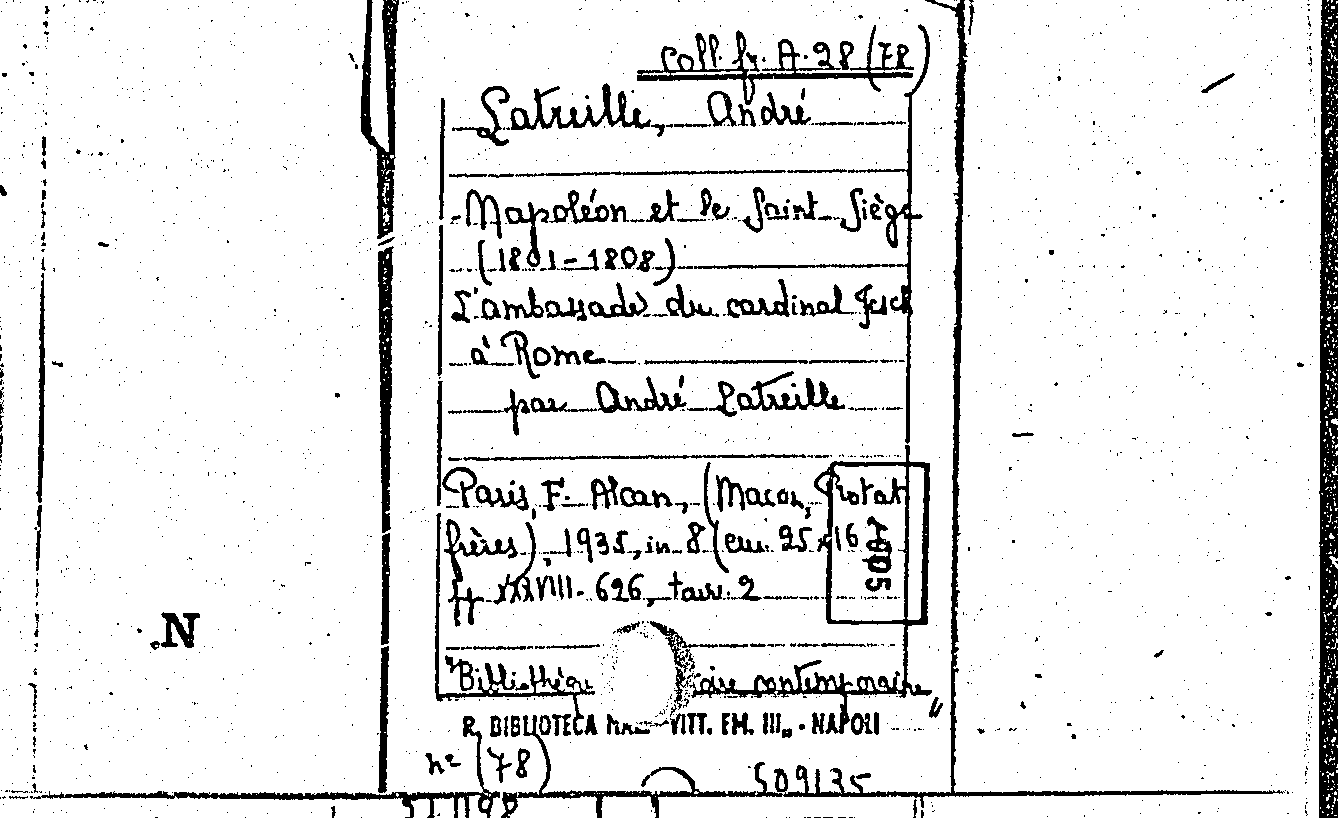 Coll. fr. A. 28 (78)
Latreille, André
- Napoléon et le Saint Siège
(1801-1808)
L'ambassade du cardinal Fesch
à Rome
par André Latreille
Paris, F. Alcan, (Macon, Protat
frères), 1935, in 8 (cm. 25x16
pp XXXVIII-626, tav. 2
"Bibliothèqu oire contemporaine"
R. BIBLIOTECA VITT. EM. III„ - NAPOLI
nº (78) 509135
7005
.N